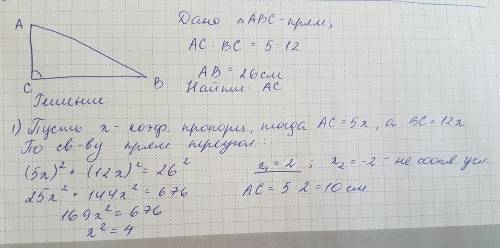 A
C
B
Дано △ABC - прям,
AC : BC = 5 : 12
AB = 26 см
Найти: AC
Решение
1) Пусть x - коэф. пропорц., тогда AC = 5x, а BC = 12x
По св-ву прям
(5x)² + (12x)² = 26²
25x² + 144x² = 676
169x² = 676
x² = 4
x₁ = 2 ; x₂ = -2 - не соотв. усл
AC = 5·2 = 10 см